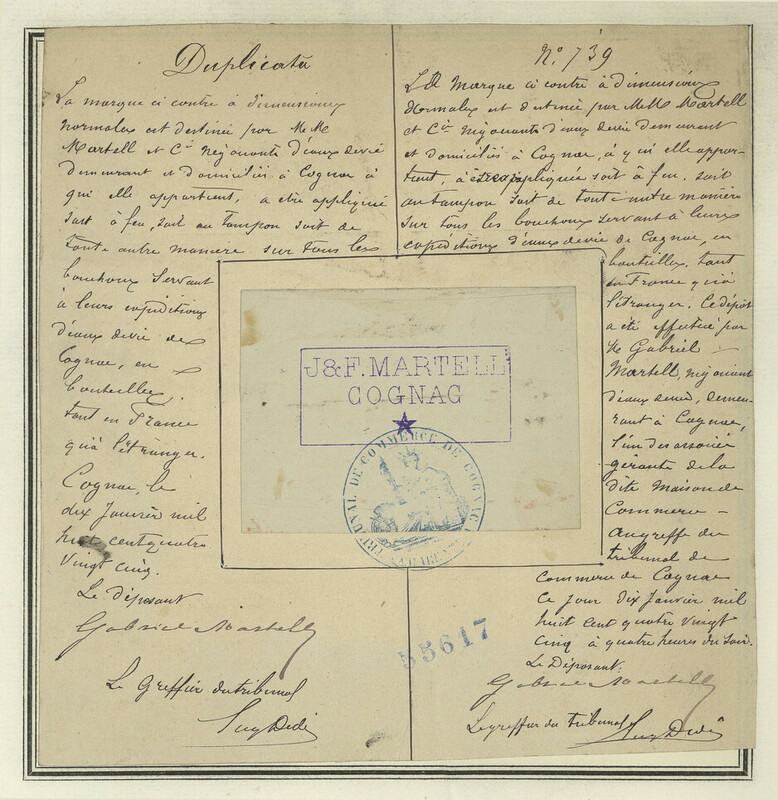 Duplicata
La marque ci contre à dimensions
normales est destinée par MM.
Martell et Cie Négociants d'eaux de vie
demeurant et domiciliés à Cognac à
qui elle appartient, a etre appliquée
soit à feu, soit au tampon soit de
toute autre manière sur tous les
bouchons servant
à leurs expéditions
d'eaux de vie de
Cognac, en
bouteilles,
tant en France
qu'à l'étranger.
Cognac, le
dix Janvier mil
huit cent quatre
vingt cinq.
Le déposant
Gabriel Martell
Le Greffier du tribunal
J&F. MARTELL
COGNAC
TRIBUNAL DE COMMERCE DE COGNAC
55617
No. 739
La Marque ci contre à dimensions
Normales est destinée par MM. Martell
et Cie Négociants d'eaux de vie demeurant
et domiciliés à Cognac, à qui elle appar-
tient, à être appliquée soit à feu, soit
au tampon soit de toute autre manière
sur tous les bouchons servant à leurs
expéditions d'eaux de vie de Cognac, en
bouteilles, tant
en France qu'à
l'étranger. Ce dépôt
a été effectué par
Mr Gabriel
Martell, négociant
d'eaux de vie, demeu-
rant à Cognac,
l'un des associés
gérants de la
dite Maison de
Commerce –
au greffe du
tribunal de
Commerce de Cognac
ce jour dix Janvier mil
huit cent quatre vingt
cinq à quatre heures du soir.
Le Déposant:
Gabriel Martell
Le greffier du tribunal